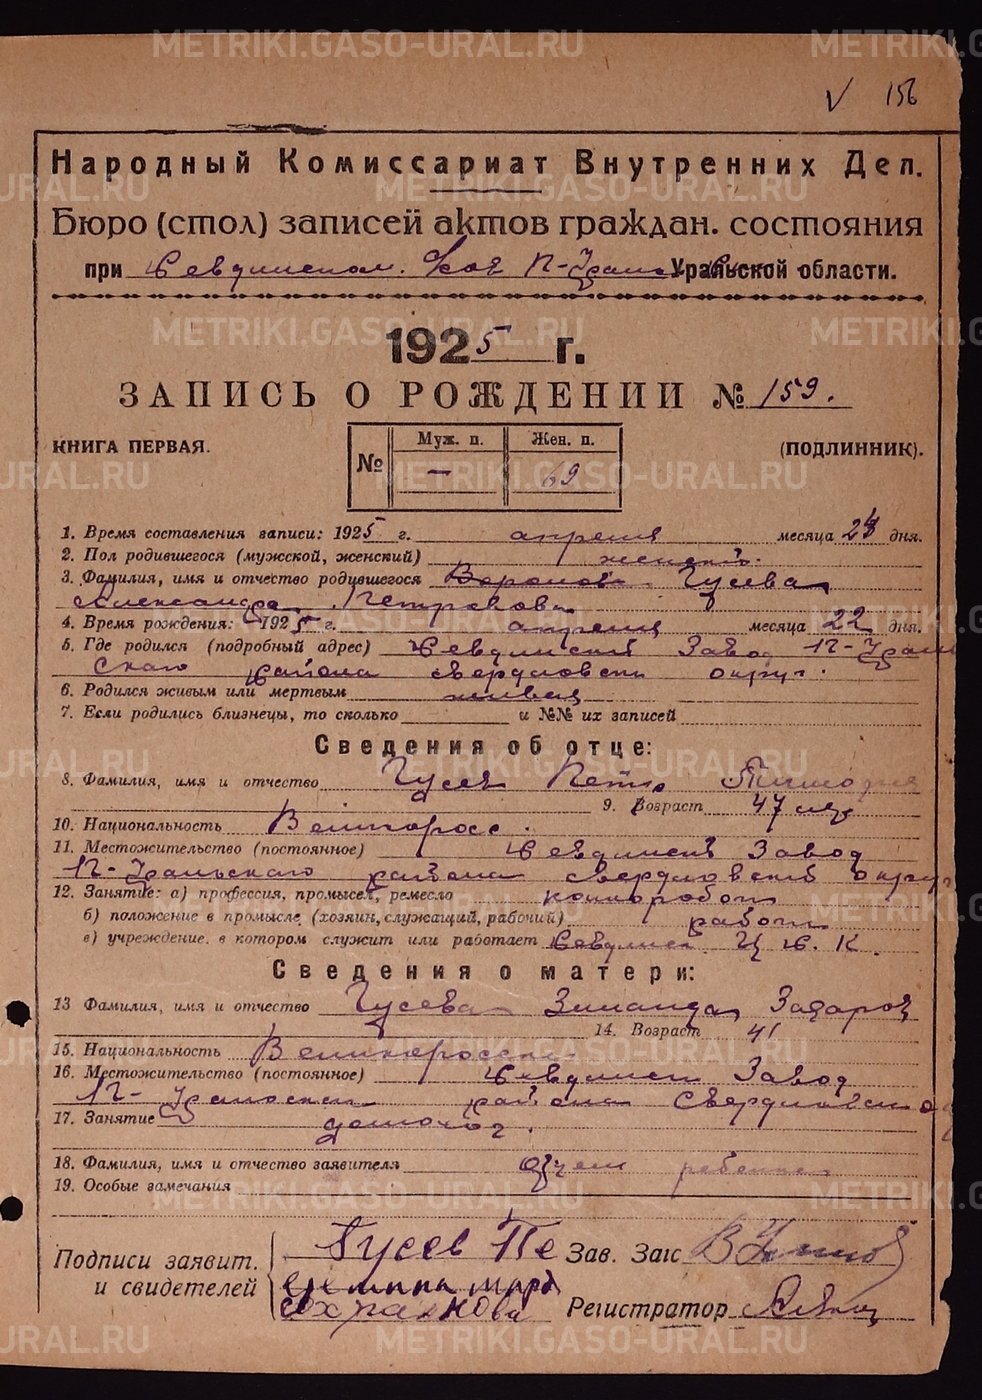 METRIKI.GASO-URAL.RU
√ 156
Народный Комиссариат Внутренних Дел.
Бюро (стол) записей актов граждан. состояния
при Уральской области.
1925 г.
ЗАПИСЬ О РОЖДЕНИИ № 159.
КНИГА ПЕРВАЯ.
№
Муж. п. Жен. п.
— 69
(ПОДЛИННИК).
1. Время составления записи: 1925 г. апреля месяца 24 дня.
2. Пол родившегося (мужской, женский) женскъ.
3. Фамилия, имя и отчество родившегося Гусева
Александра Петровова
4. Время рождения: 1925 г. апреля месяца 22 дня.
5. Где родился (подробный адрес) Завод П-Ураль
скаго района свердловск округ.
6. Родился живым или мертвым живая
7. Если родились близнецы, то сколько и №№ их записей
Сведения об отце:
8. Фамилия, имя и отчество Гусев Петр
9. Возраст 47 лет
10. Национальность Великоросс.
11. Местожительство (постоянное) Завод
П-Уральскаго района свердловскъ округ
12. Занятие: а) профессия, промысел, ремесло
б) положение в промысле (хозяин, служащий, рабочий) работн
в) учреждение. в котором служит или работает
Сведения о матери:
13 Фамилия, имя и отчество Гусева Захаров
14. Возраст 41
15. Национальность Великоросска
16. Местожительство (постоянное) Завод
П-Уральскаго района Свердловского
17. Занятие домохоз.
18. Фамилия, имя и отчество заявителя Отцем ребенка
19. Особые замечания
Подписи заявит.
и свидетелей
Гусев Пе
Зав. Загс
Регистратор